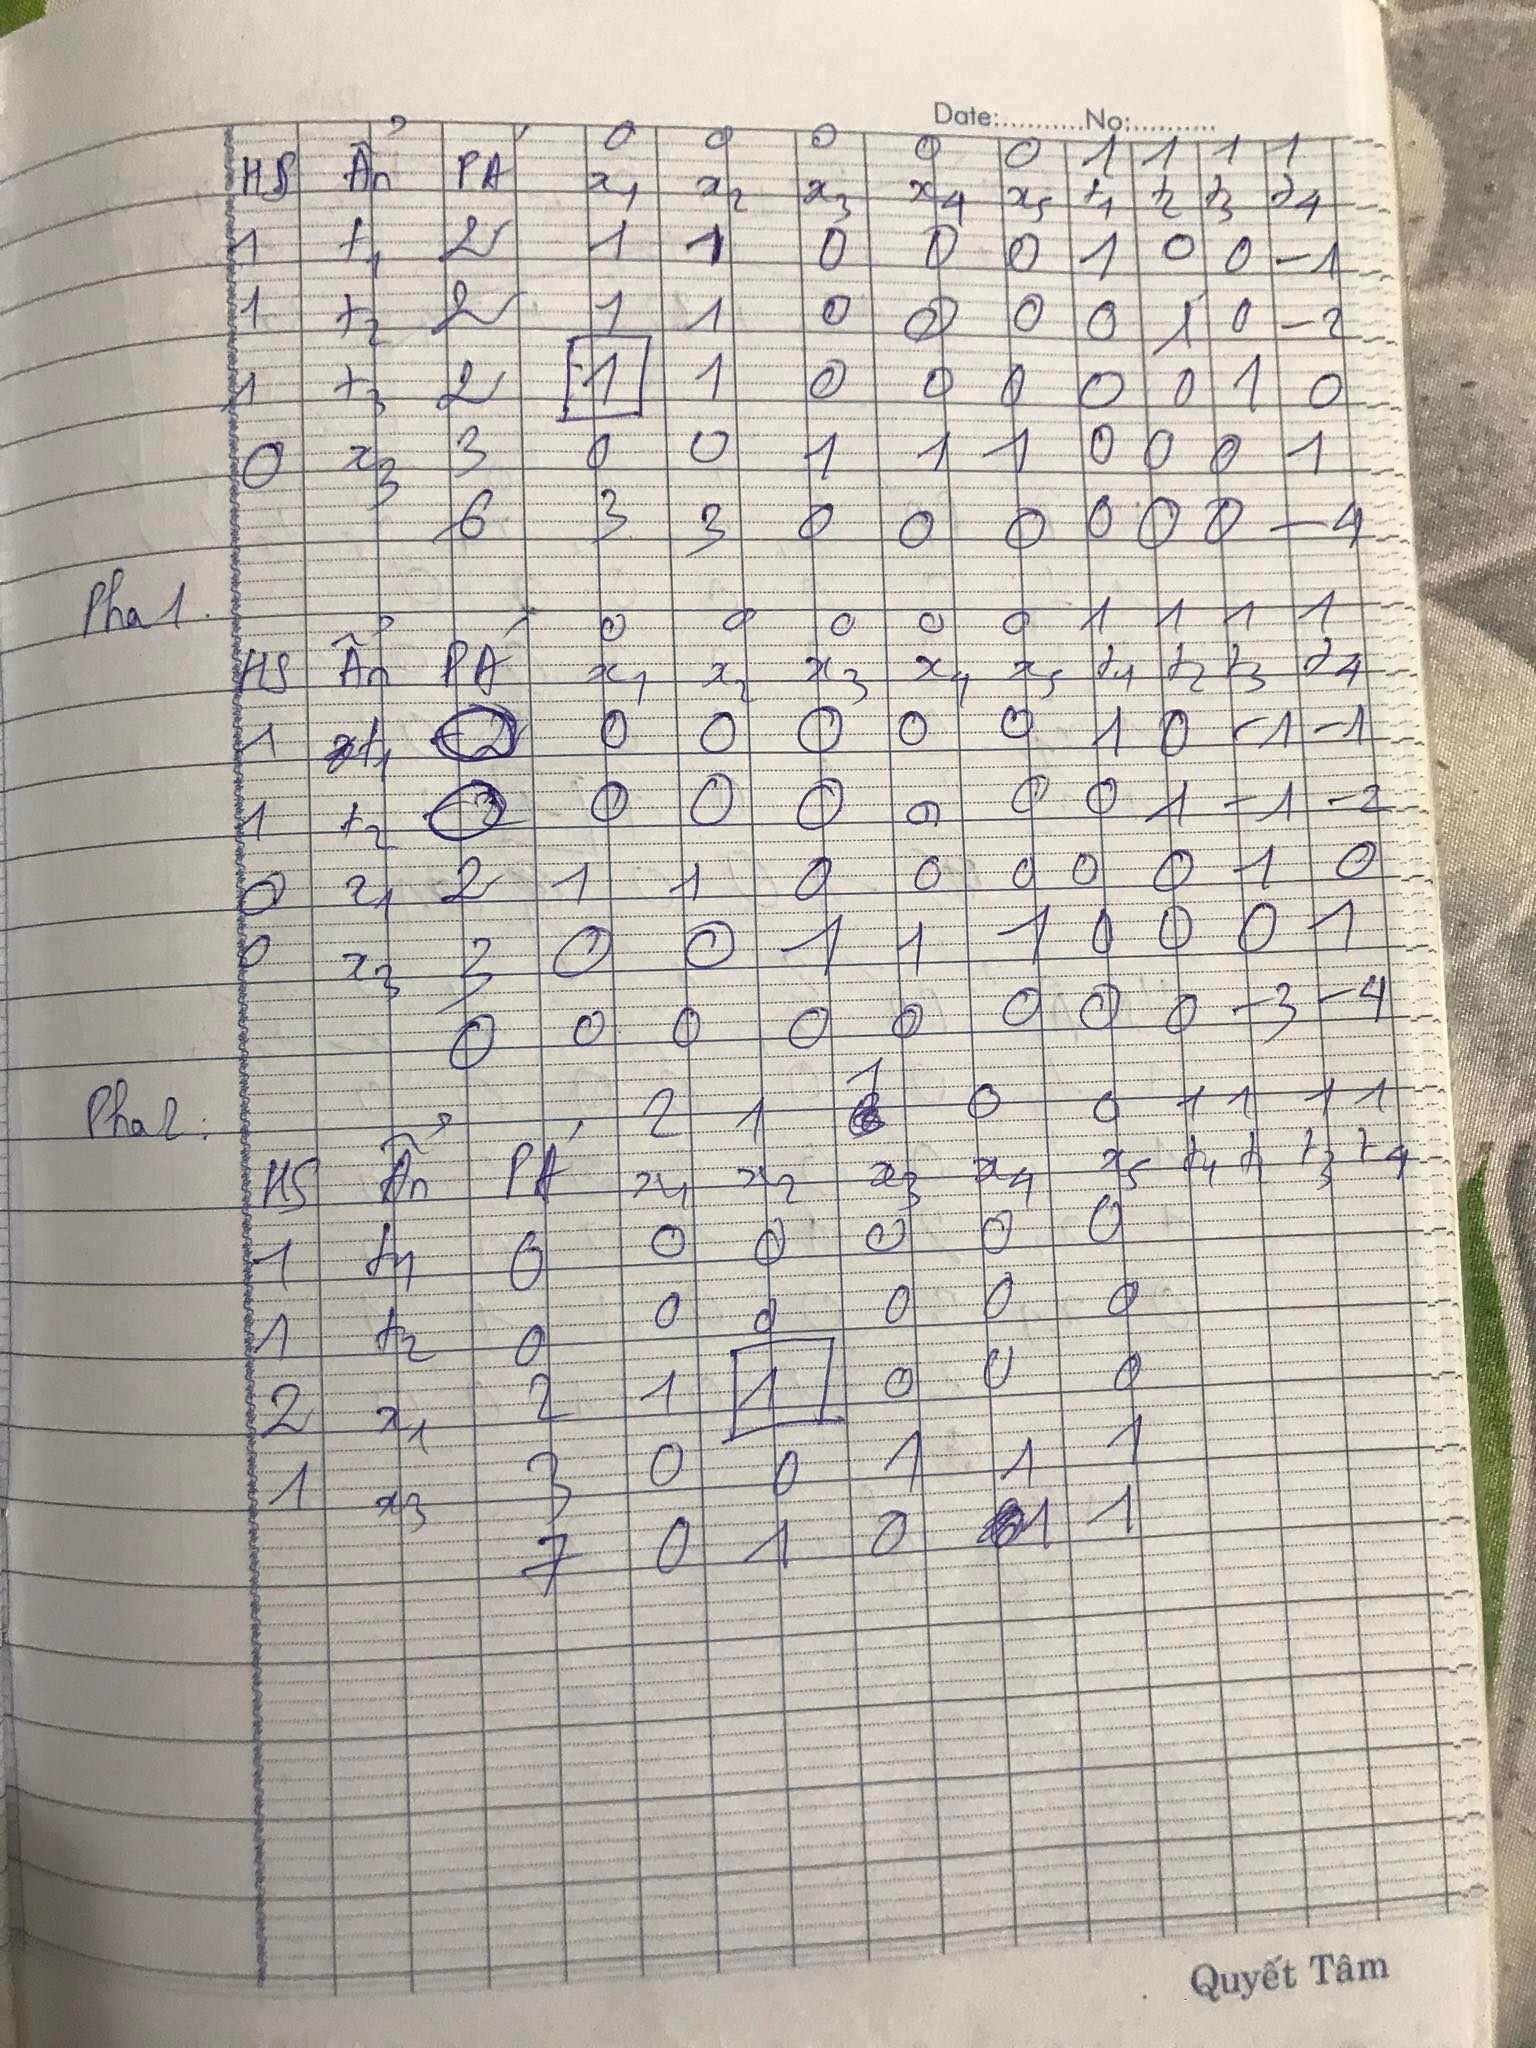 Date:..........No:..........
0 0 0 0 0 1 1 1 1
HS Ẩn PA' x1 x2 x3 x4 x5 t1 t2 t3 t4
1 t1 2 1 1 0 0 0 1 0 0 -1
1 t2 2 1 1 0 0 0 0 1 0 -2
1 t3 2 1 1 0 0 0 0 0 1 0
0 x3 3 0 0 1 1 1 0 0 0 1
6 3 3 0 0 0 0 0 0 -4
Pha 1.
0 0 0 0 0 1 1 1 1
HS Ẩn PA' x1 x2 x3 x4 x5 t1 t2 t3 t4
1 t1 0 0 0 0 0 1 0 -1 -1
1 t2 0 0 0 0 0 0 1 -1 -2
0 x1 2 1 1 0 0 0 0 0 1 0
0 x3 3 0 0 1 1 1 0 0 0 1
0 0 0 0 0 0 0 0 -3 -4
Pha 2:
2 1 1 0 0 1 1 1 1
HS Ẩn PA' x1 x2 x3 x4 x5 t1 t2 t3 t4
1 t1 0 0 0 0 0 0
1 t2 0 0 0 0 0 0
2 x1 2 1 1 0 0 0
1 x3 3 0 0 1 1 1
7 0 1 0 1 1
Quyết Tâm